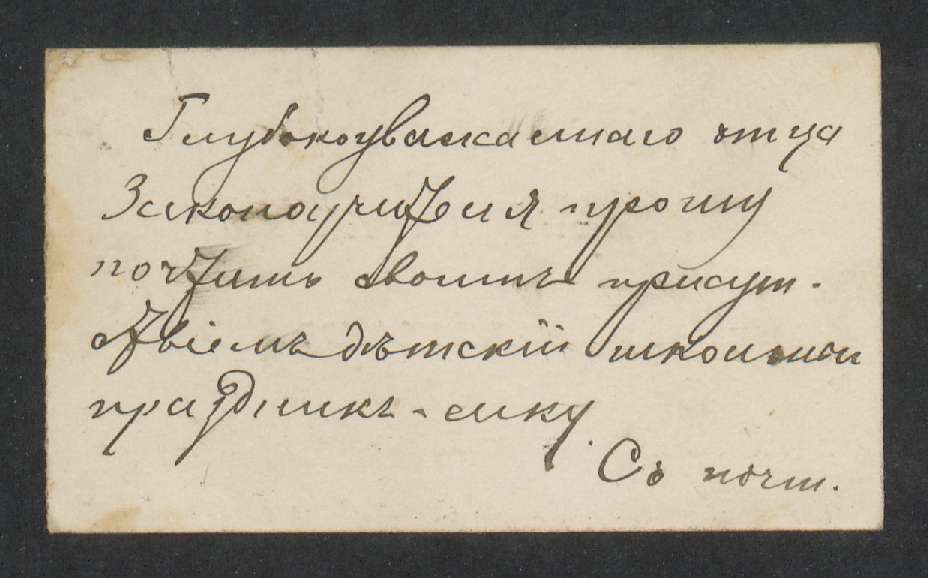 Глубокоуважаемаго отца
Законоучителя прошу
почтить своимъ присут-
ствіемъ дѣтскій школьный
праздникъ-елку.
Съ почт.